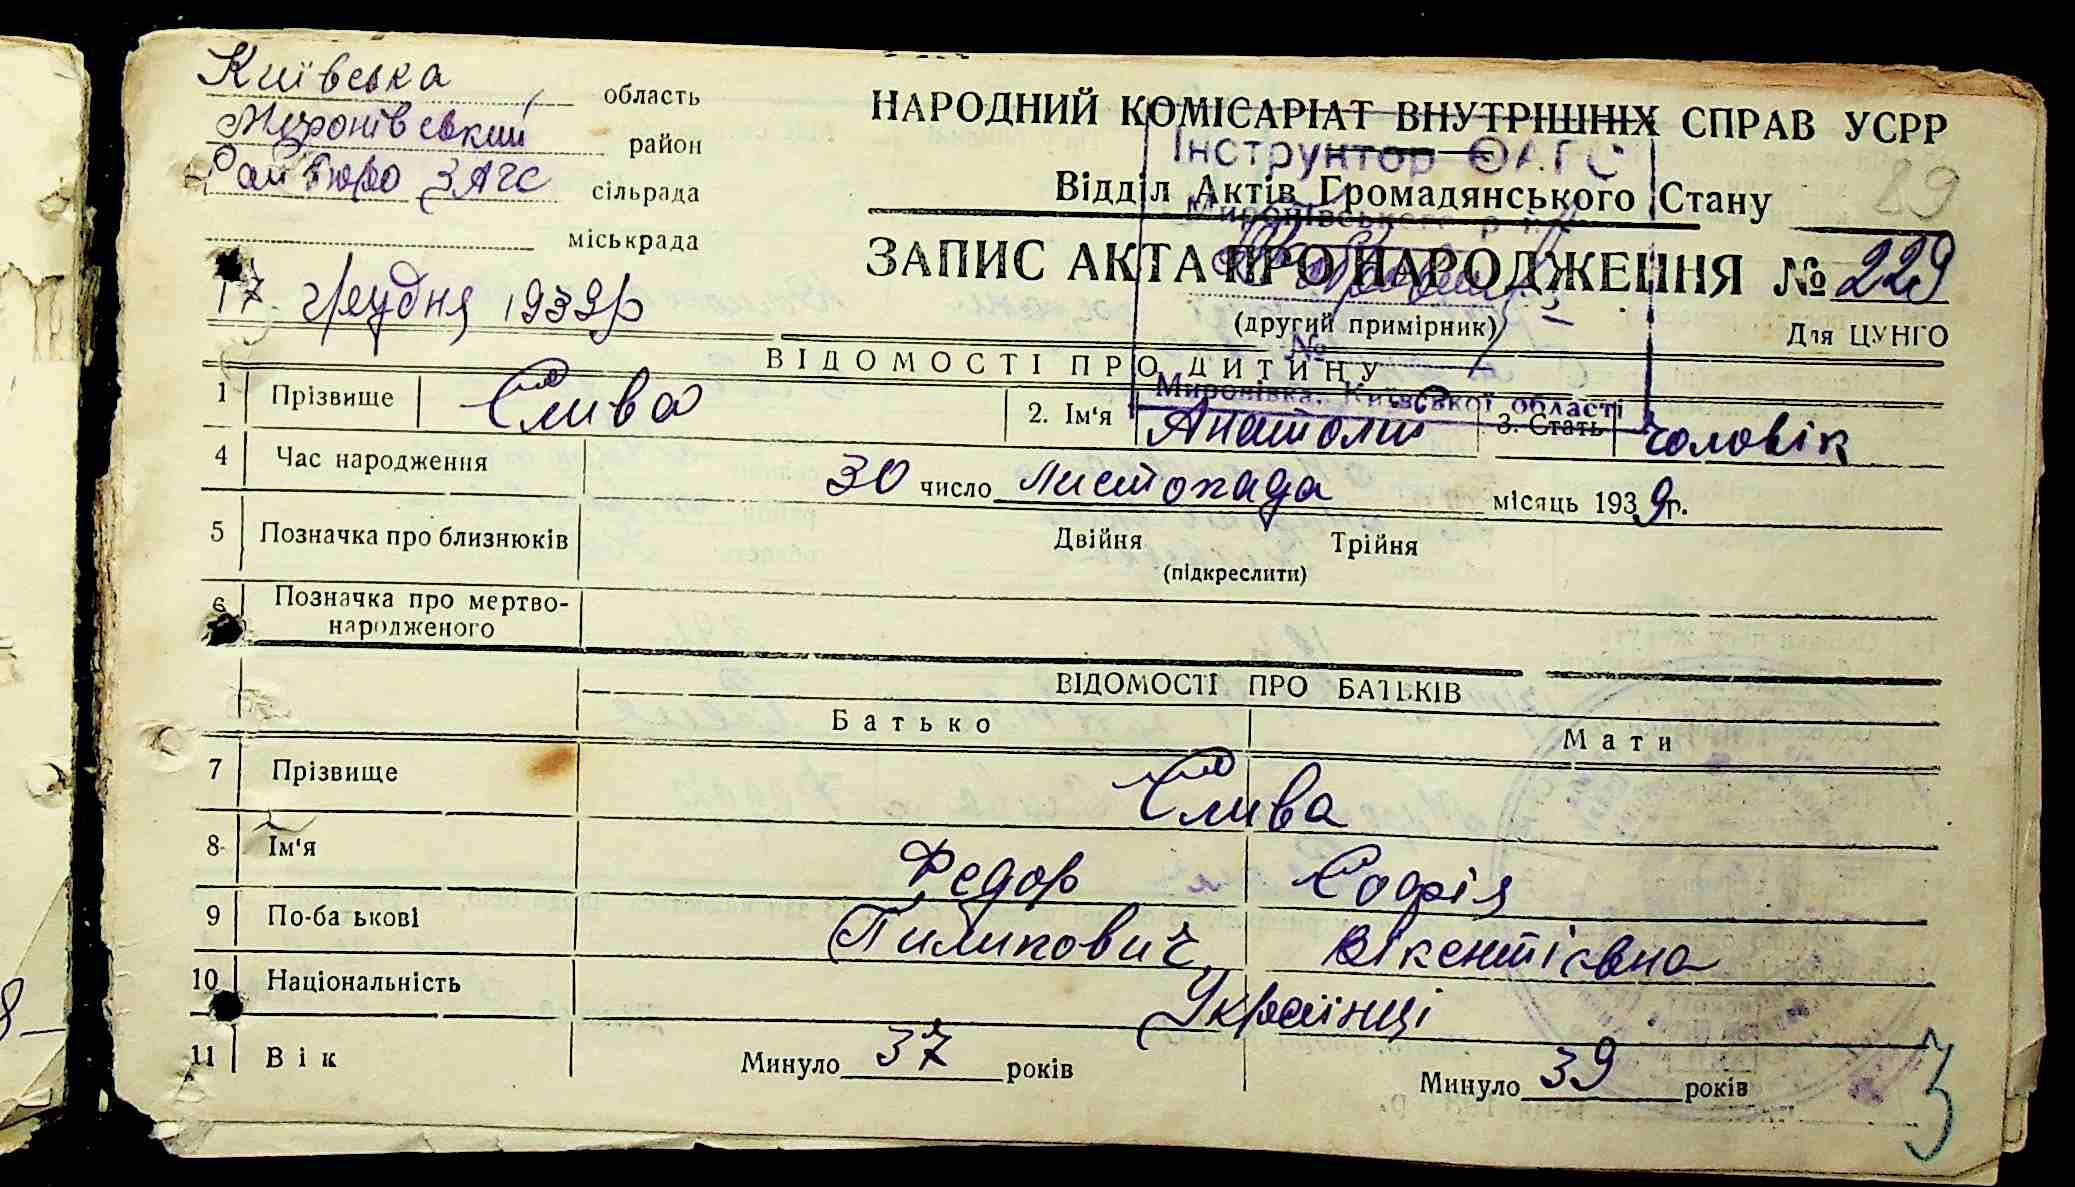 Київська область
Миронівський район
Рай бюро ЗАГС сільрада
міськрада
17 грудня 1939р
НАРОДНИЙ КОМІСАРІАТ ВНУТРІШНІХ СПРАВ УСРР
Інструктор ОАГС
Відділ Актів Громадянського Стану
89
Миронівського
ЗАПИС АКТА ПРО НАРОДЖЕННЯ № 229
(другий примірник)
Для ЦУНГО
№
ВІДОМОСТІ ПРО ДИТИНУ
Миронівка, Київської області
1 Прізвище Слива 2. Ім'я Анатолій 3. Стать чоловік
4 Час народження 30 число Листопада місяць 1939 г.
5 Позначка про близнюків Двійня Трійня
(підкреслити)
6 Позначка про мертво-
народженого
ВІДОМОСТІ ПРО БАТЬКІВ
Батько Мати
7 Прізвище Слива
8 Ім'я Федор Софія
9 По-батькові Пилипович Вікентієвна
10 Національність Українці
11 Вік Минуло 37 років Минуло 39 років
3